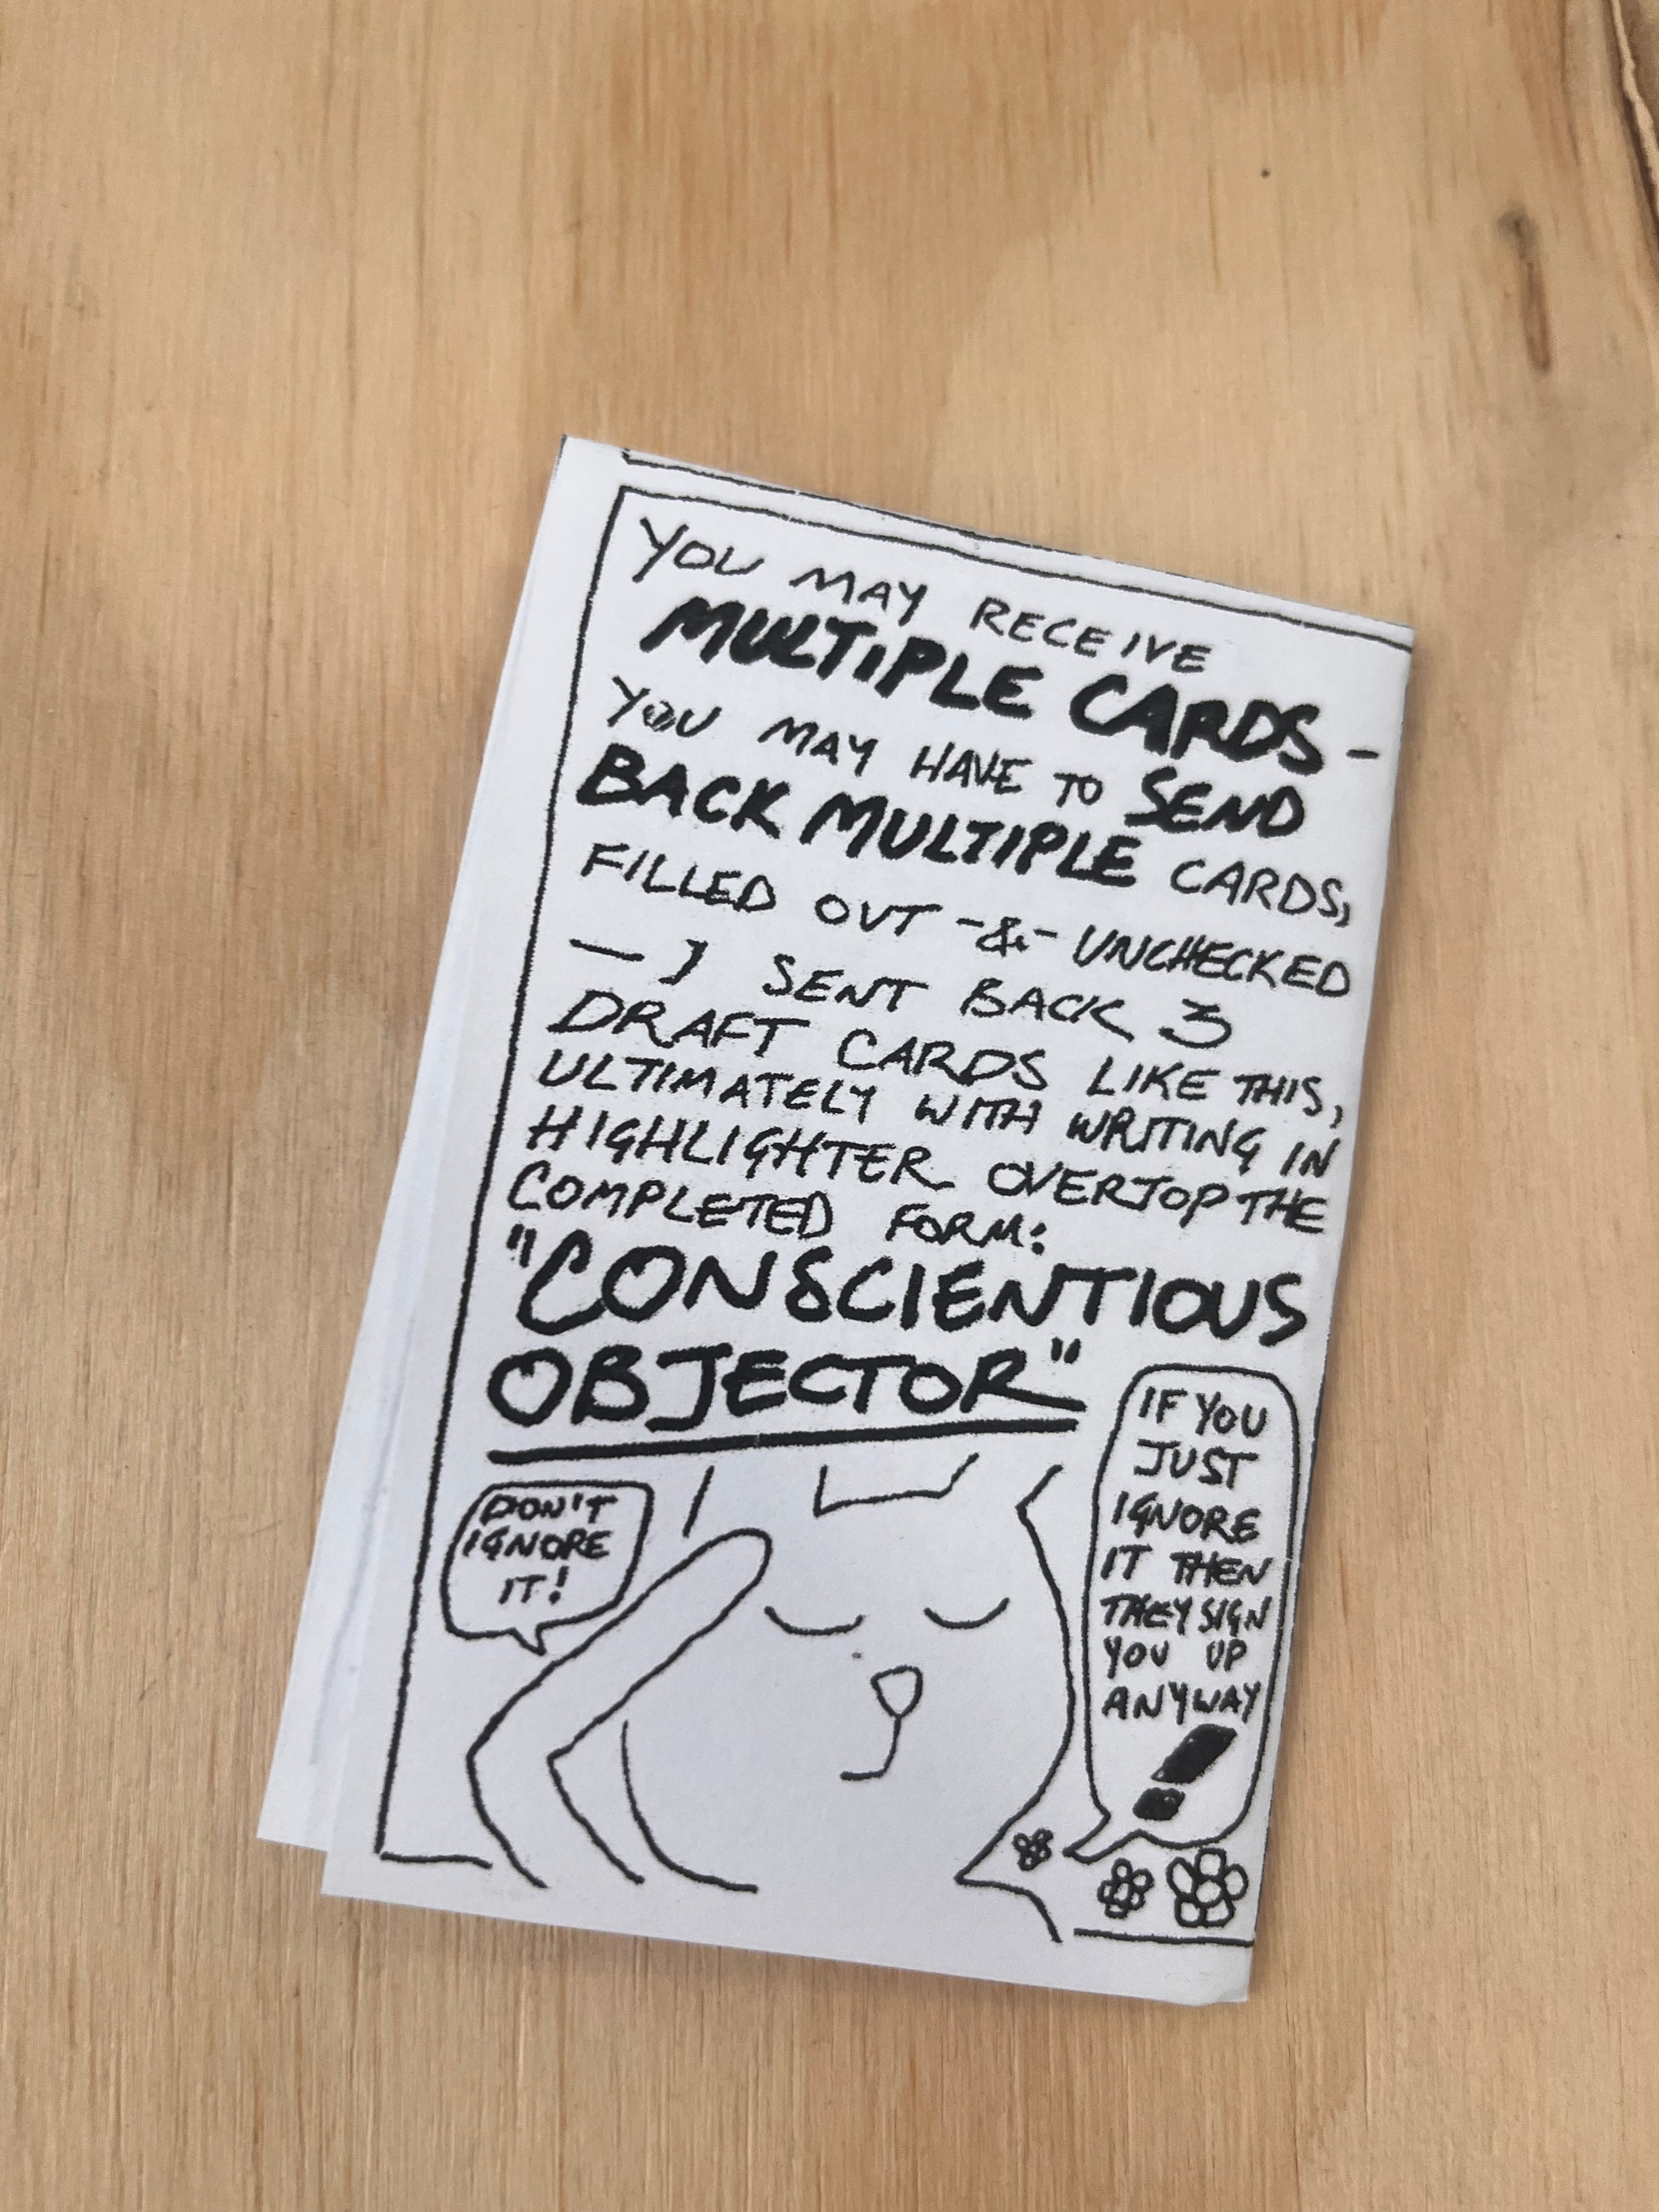 YOU MAY RECEIVE
MULTIPLE CARDS -
YOU MAY HAVE TO SEND
BACK MULTIPLE CARDS,
FILLED OUT -&- UNCHECKED
— I SENT BACK 3
DRAFT CARDS LIKE THIS,
ULTIMATELY WITH WRITING IN
HIGHLIGHTER OVERTOP THE
COMPLETED FORM:
"CONSCIENTIOUS
OBJECTOR"
DON'T
IGNORE
IT!
IF YOU
JUST
IGNORE
IT THEN
THEY SIGN
YOU UP
ANYWAY
!